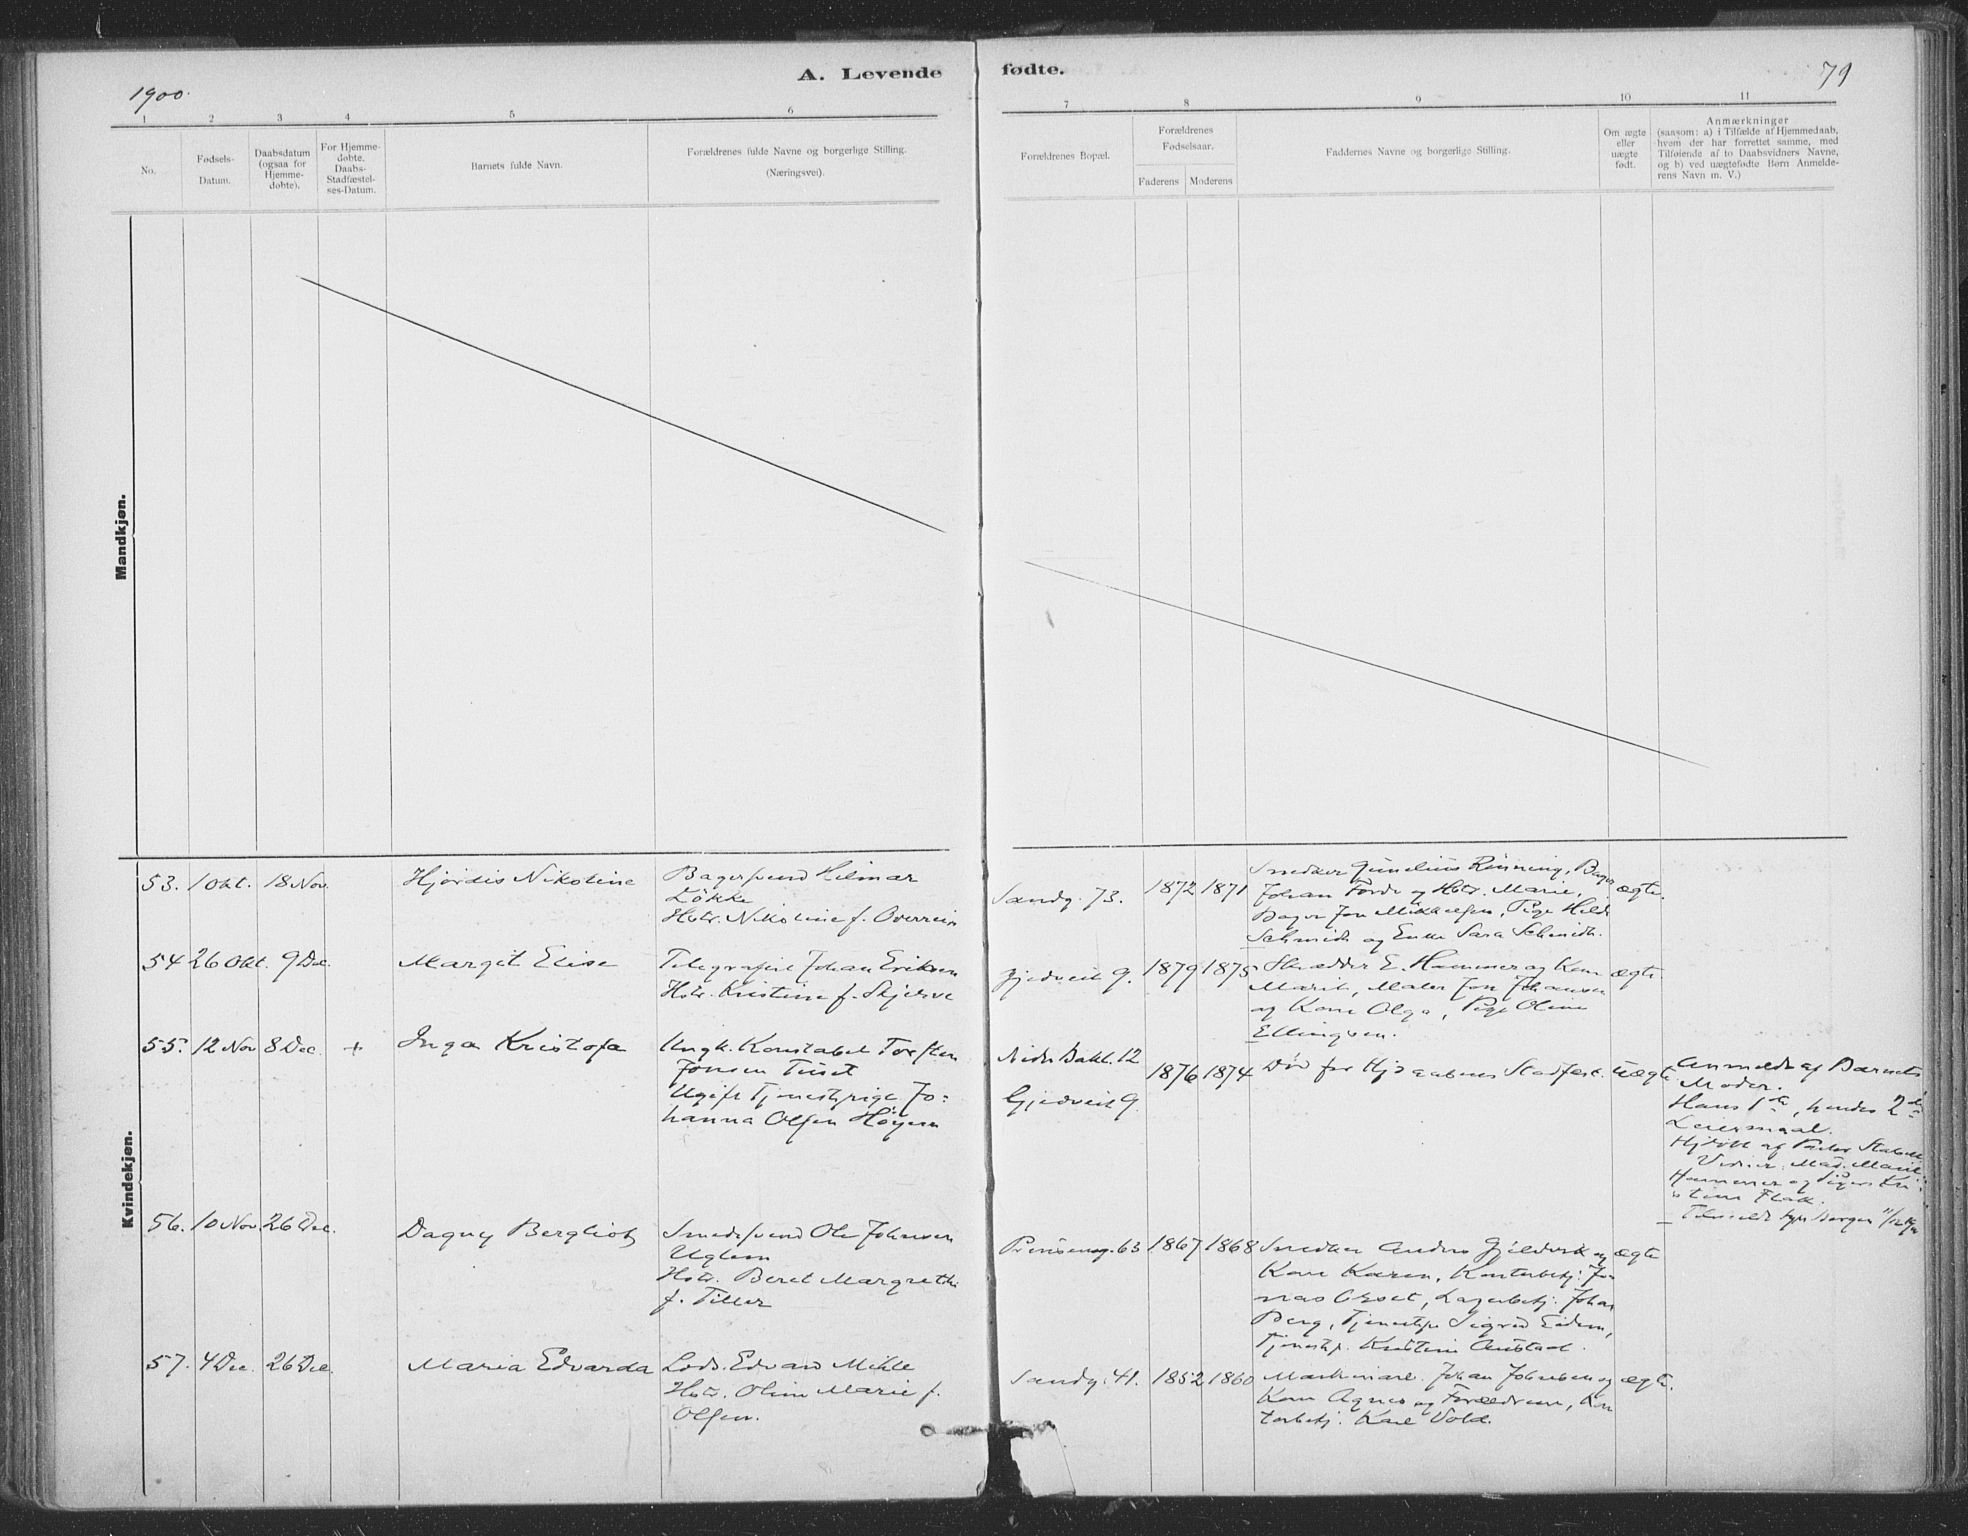 1900.
A. Levende fødte.
79
1 2 3 4 5 6 7 8 9 10 11
No.
Fødsels-
Datum.
Daabsdatum
(ogsaa for
Hjemme-
døbte).
For Hjemme-
døbte.
Daabs-
Stadfæstel-
ses-Datum.
Barnets fulde Navn.
Forældrenes fulde Navne og borgerlige Stilling.
(Næringsvei).
Forældrenes Bopæl.
Forældrenes
Fødselsaar.
Faderens Moderens
Faddernes Navne og borgerlige Stilling.
Om ægte
eller
uægte
født.
Anmærkninger
(saasom: a) i Tilfælde af Hjemmedaab,
hvem der har forrettet samme, med
Tilføiende af to Daabsvidners Navne,
og b) ved uægtefødte Børn Anmelde-
rens Navn m. V.)
Mandkjøn.
Kvindekjøn.
53. 1 Okt. 18 Nov. Hjördis Nikoline
Bagersvend Hilmar
Løkke
Hstr. Nikoline f. Overrein
Sandg. 73. 1872 1871
Snedker Rönning, Bager
Johan og Hstr. Marie,
Bager Jon Mikkelsen, Pige
Schmidt og Enke Sara Schmidt.
ægte.
54 26 Okt. 9 Dec. Margit Elise
Telegrafist Johan Eriksen
Hstr. Kristine f. Skjerve
Gjedveit 9. 1879 1875
Skrædder E. Hammer og Kone
Marit, Maler Jon Johansen
og Kone Olga, Pige Oline
Ellingsen.
ægte
55. 12 Nov 8 Dec. + Inga Kristofa
Ungk. Konstabel Torsten
Jonsen Tiset
Ugift Tjenestpige Jo-
hanna Olsen Höyem
Nidr. Bakl. 12
Gjedveit 9.
1876 1874
Död før Hjdaabens Stadfæst. uægte
Anmeldt af Barnets
Moder.
Hans 1ste, hendes 2det
Leiermaal.
Hjdøbt af
Mad. Marit
Hammer og
Flatt.
Bergen
56. 10 Nov. 26 Dec. Dagny Bergliot
Smedesvend Ole Johnsen
Uglem
Hstr. Beret Margrethe
f. Tiller
Prinsensg. 63 1867 1868
Snedker Anders og
Kone Karen, Kontorbetj. Jo-
nas Lagerbetj. Johan
Berg, Tjenestp. Sigrid Eidem,
Tjenestp. Kristine Anstad.
ægte
57. 4 Dec. 26 Dec. Maria Edvarda
Lods. Edvard Mikle
Hstr. Oline Marie f.
Olsen.
Sandg. 41. 1852 1860
Johan Johnsen og
Kone Agnes og Forældrene, Kon
torbetj. Karl Vold.
ægte.